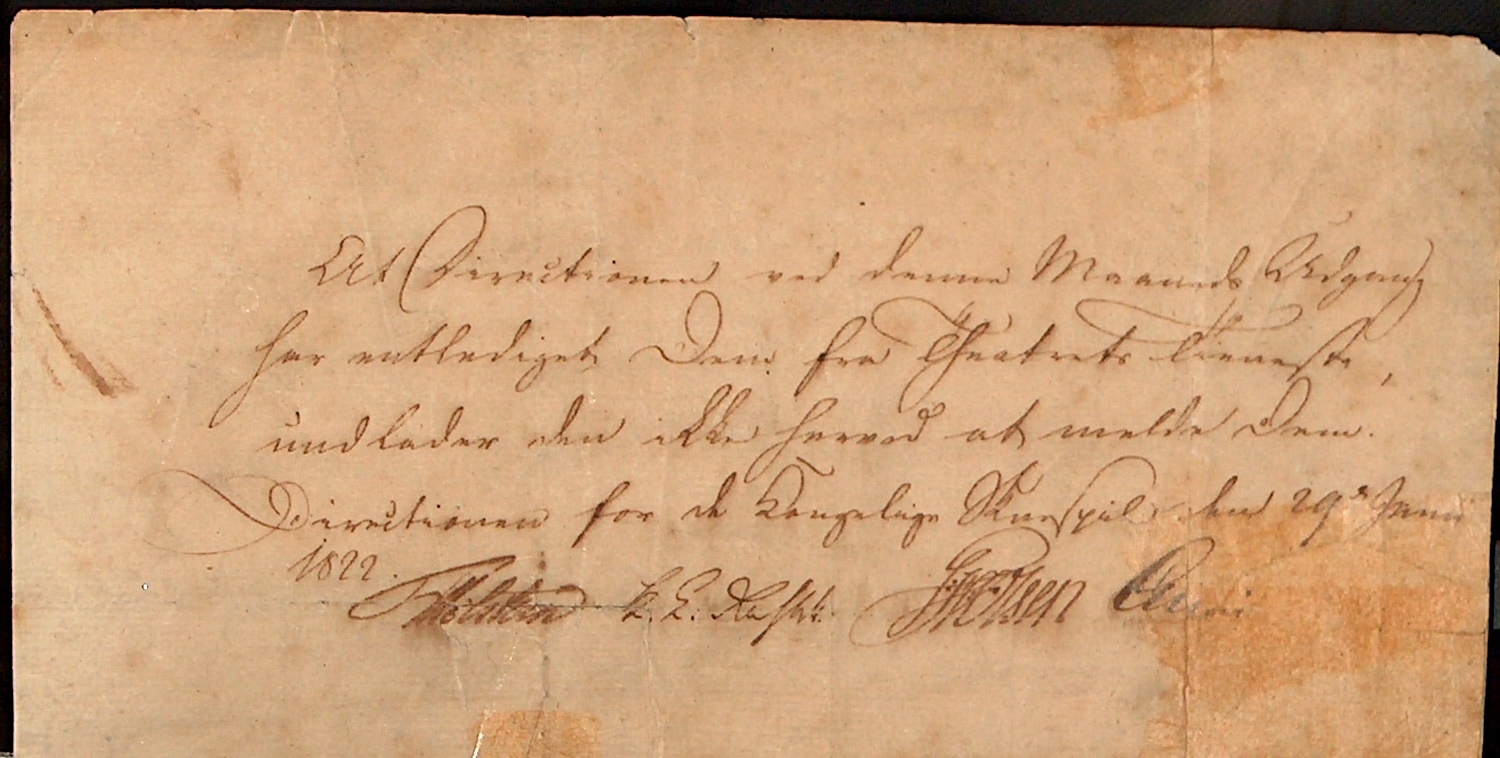 At Directionen ved denne Maaneds Udgang
har entlediget Dem fra Theatrets Tieneste,
undlader den ikke herved at melde Dem.
Directionen for de Kongelige Skuespil den 29de Juni
1822.
Holstein K. L. Rahbek. GHOlsen